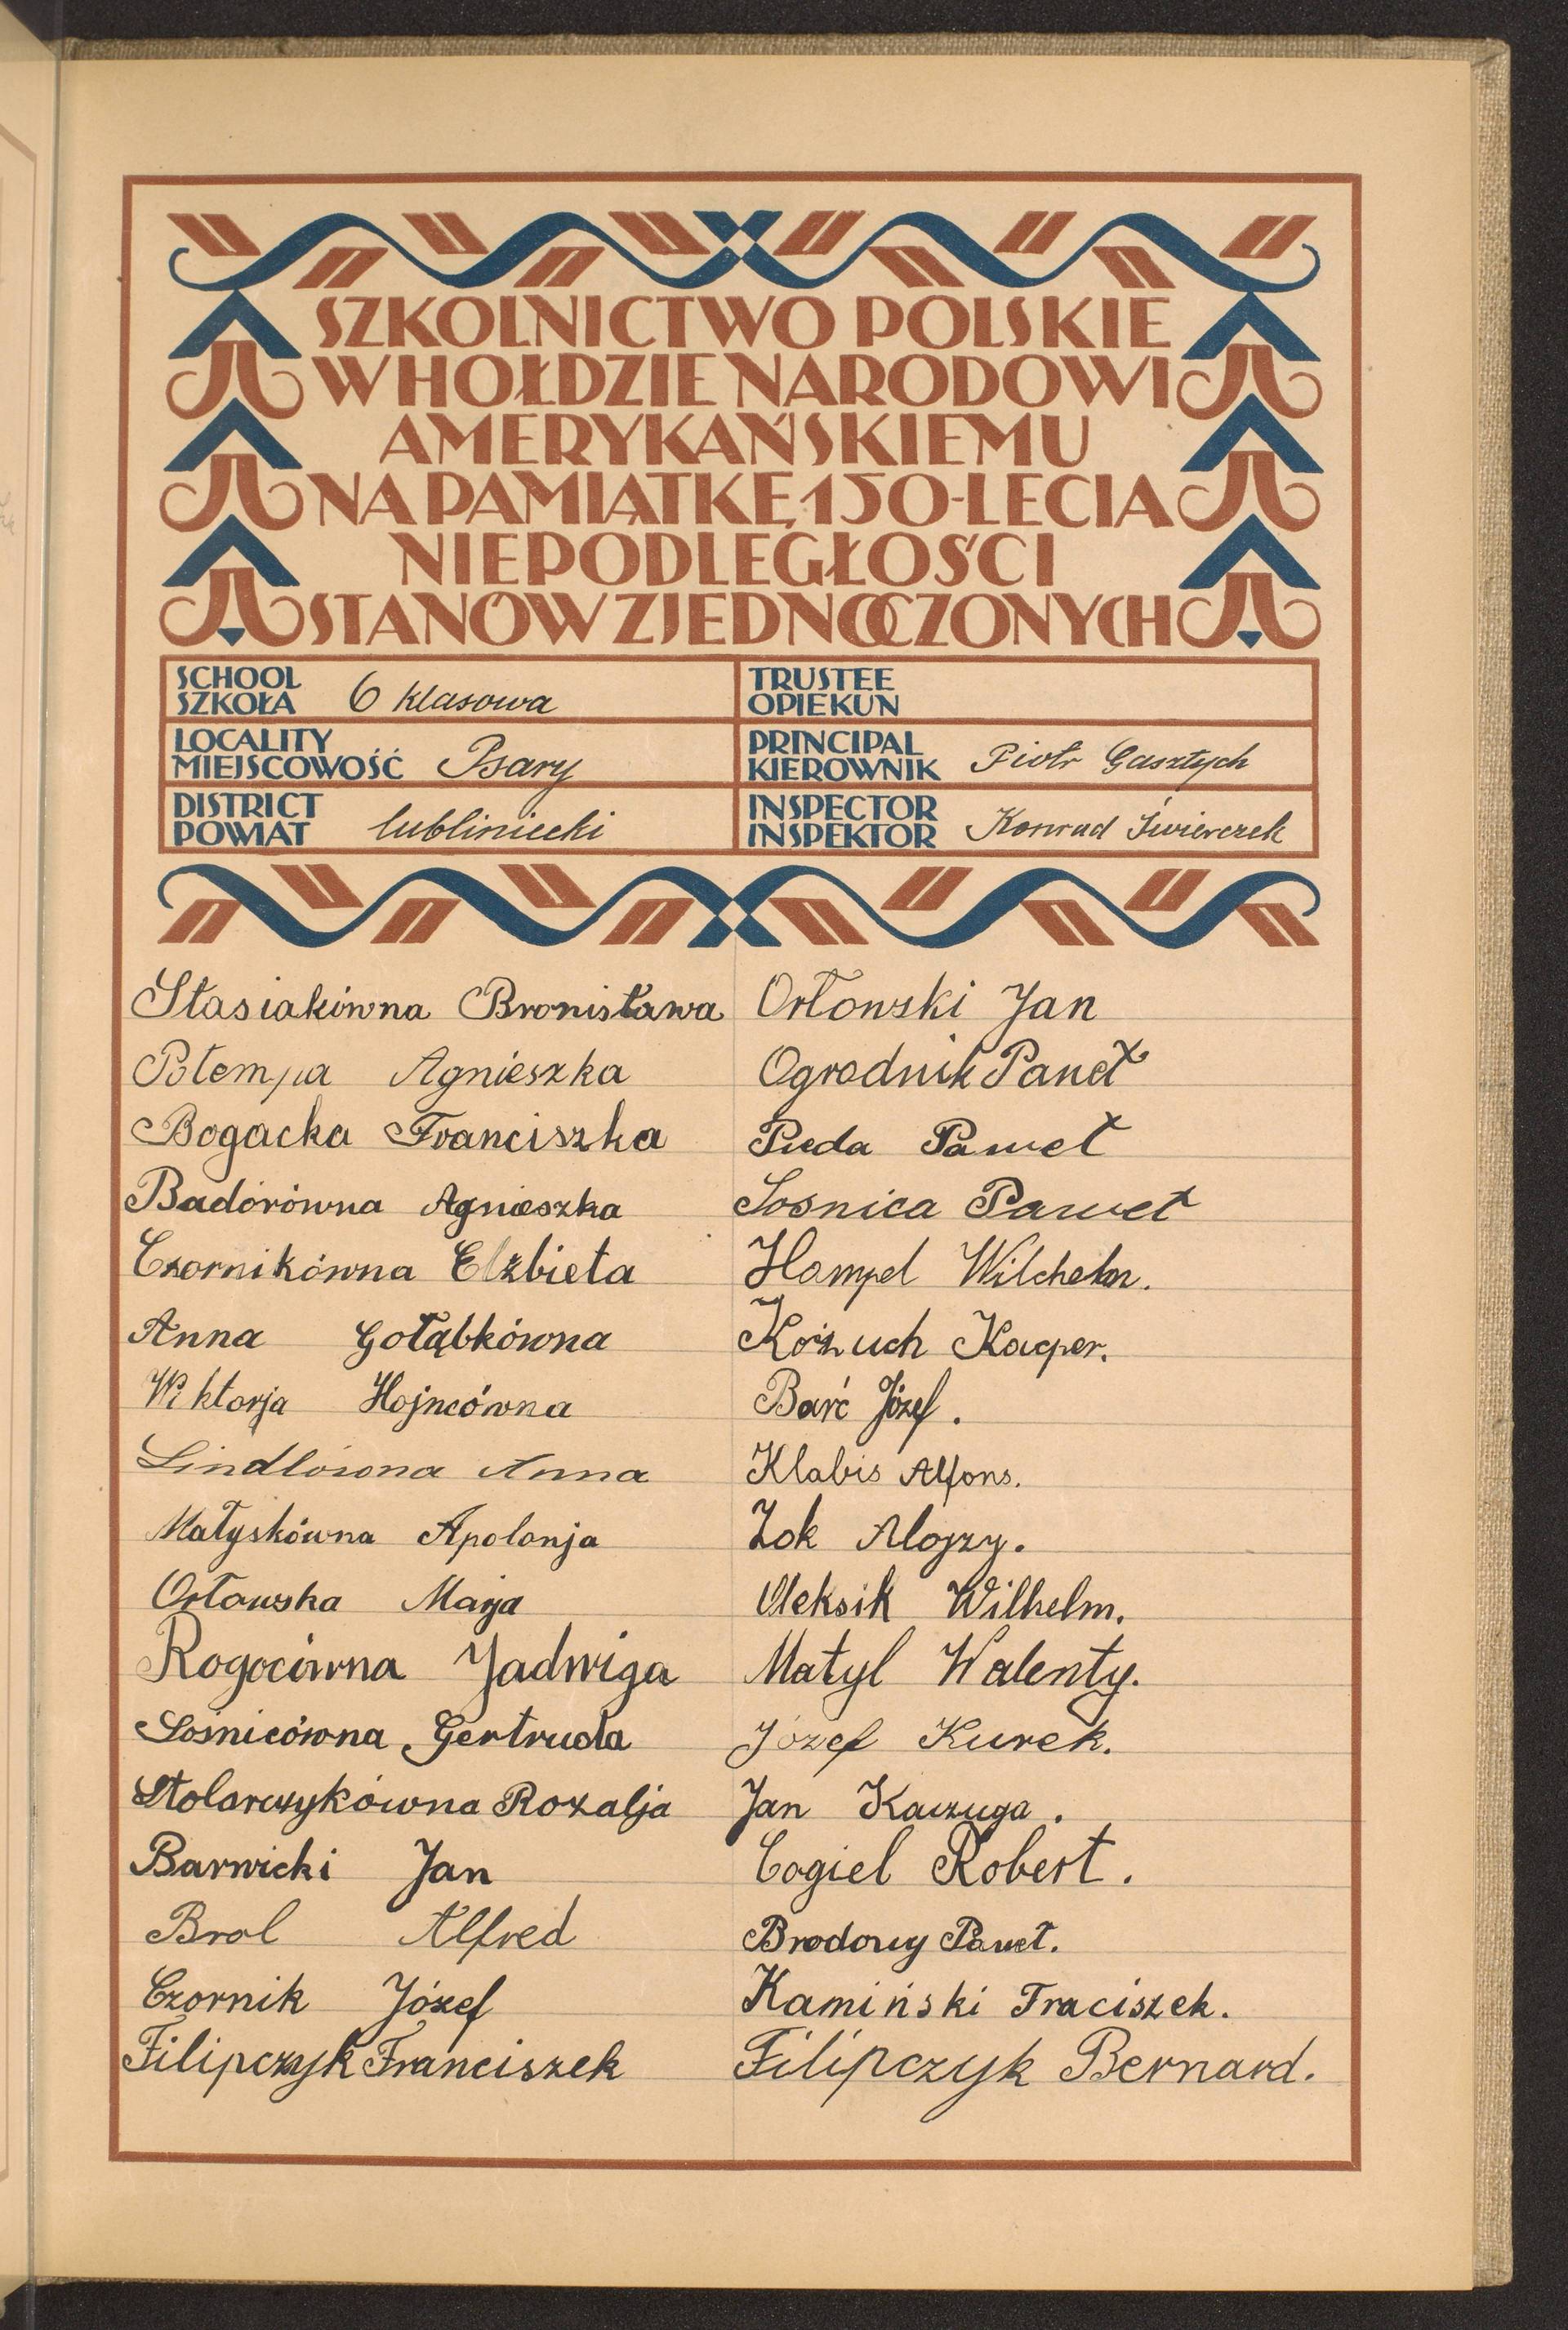 SZKOLNICTWO POLSKIE
W HOŁDZIE NARODOWI
AMERYKAŃSKIEMU
NA PAMIĄTKĘ 150-LECIA
NIEPODLEGŁOŚCI
STANÓW ZJEDNOCZONYCH
SCHOOL
SZKOŁA 6 klasowa
TRUSTEE
OPIEKUN
LOCALITY
MIEJSCOWOŚĆ Psary
PRINCIPAL
KIEROWNIK Piotr Gasztych
DISTRICT
POWIAT lubliniecki
INSPECTOR
INSPEKTOR Konrad Świerczek
Stasiakówna Bronisława
Potempa Agnieszka
Bogacka Franciszka
Badorówna Agnieszka
Czornikówna Elżbieta
Anna Gołąbkówna
Wiktorja Hojncówna
Lindlówna Anna
Małyskówna Apolonja
Orłowska Marja
Rogocówna Jadwiga
Sośnicówna Gertruda
Stolarczykówna Rozalja
Barwicki Jan
Brol Alfred
Czornik Józef
Filipczyk Franciszek
Orłowski Jan
Ogrodnik Paweł
Puda Paweł
Sosnica Paweł
Hampel Wilchelm.
Kożuch Kacper.
Barć Józef.
Klabis Alfons.
Żok Alojzy.
Oleksik Wilhelm.
Matyl Walenty.
Józef Kurek.
Jan Kaczuga.
Cogiel Robert.
Brodowy Paweł.
Kamiński Fraciszek.
Filipczyk Bernard.